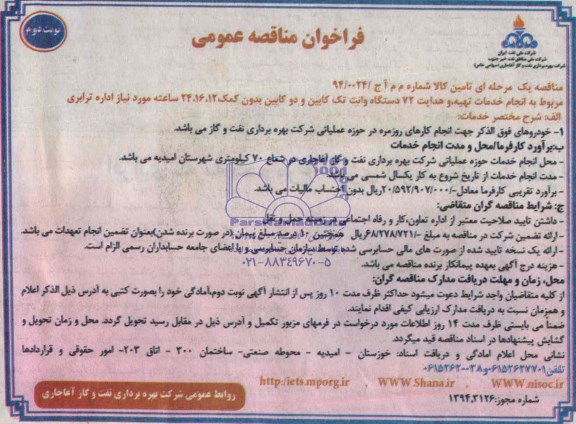 نوبت دوم
فراخوان مناقصه عمومی
شرکت ملی نفت ایران
شرکت ملی مناطق نفت خیز جنوب
شرکت بهره برداری نفت و گاز آغاجاری (سهامی خاص)
مناقصه یک مرحله ای تامین کالا شماره م م آ ج /۹۴/۰۰۲۴
مربوط به انجام خدمات تهیه و هدایت ۷۲ دستگاه وانت تک کابین و دو کابین بدون کمک ۲۴،۱۶،۱۲ ساعته مورد نیاز اداره ترابری
الف: شرح مختصر خدمات:
۱- خودروهای فوق الذکر جهت انجام کارهای روزمره در حوزه عملیاتی شرکت بهره برداری نفت و گاز می باشد.
ب: برآورد کارفرما/محل و مدت انجام خدمات
- محل انجام خدمات حوزه عملیاتی شرکت بهره برداری نفت و گاز آغاجاری در شعاع ۷۰ کیلومتری شهرستان امیدیه می باشد.
- مدت انجام خدمات از تاریخ شروع به کار یکسال شمسی می باشد.
- برآورد تقریبی کارفرما معادل /۲۰/۵۹۲/۹۰۷/۰۰۰ ریال بدون احتساب مالیات می باشد.
ج: شرایط مناقصه گران متقاضی:
- داشتن تایید صلاحیت معتبر از اداره تعاون، کار و رفاه اجتماعی در زمینه حمل و نقل
- ارائه تضمین شرکت در مناقصه به مبلغ /۶۸/۲۷۸/۷۲۱ ریال همچنین ۱۰ درصد مبلغ پیمان (در صورت برنده شدن) بعنوان تضمین انجام تعهدات می باشد.
- ارائه یک نسخه تایید شده از صورت های مالی حسابرسی شده توسط سازمان حسابرسی و یا اعضای جامعه حسابداران رسمی الزام است.
- هزینه درج آگهی بعهده پیمانکار برنده مناقصه می باشد.
۰۲۱-۸۸۳۴۹۶۷۰-۵
محل، زمان و مهلت دریافت مدارک مناقصه گران:
از کلیه متقاضیان واجد شرایط دعوت میشود حداکثر ظرف مدت ۱۰ روز پس از انتشار آگهی نوبت دوم، آمادگی خود را بصورت کتبی به آدرس ذیل الذکر اعلام
و همزمان نسبت به دریافت مدارک ارزیابی کیفی اقدام نمایند.
ضمناً می بایستی ظرف مدت ۱۴ روز اطلاعات مورد درخواست در فرمهای مزبور تکمیل و آدرس ذیل در مقابل رسید تحویل گردد. محل و زمان تحویل و
گشایش پیشنهادها در اسناد مناقصه قید میگردد.
نشانی محل اعلام امادگی و دریافت اسناد: خوزستان - امیدیه - محوطه صنعتی- ساختمان ۳۰۰ - اتاق ۲۰۳- امور حقوقی و قراردادها
http://iets.mporg.ir . WWW.Shana.ir . WWW.nisoc.ir
شماره مجوز: ۱۳۹۴،۳۱۲۶
روابط عمومی شرکت بهره برداری نفت و گاز آغاجاری